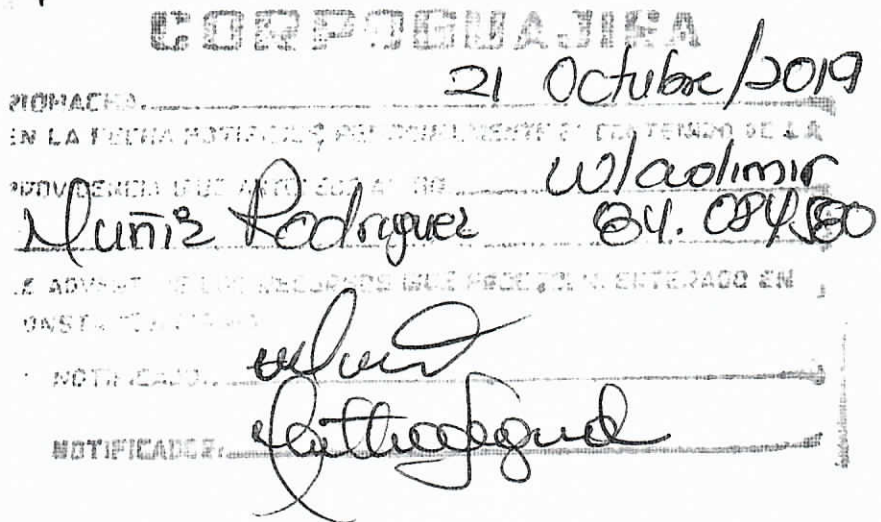 CORPOGUAJIRA
RIOHACHA 21 Octubre/2019
EN LA FECHA NOTIFICO PERSONALMENTE EL CONTENIDO DE LA
PROVIDENCIA QUE Wladimir
Muñiz Rodriguez 84.084.580
SE ADVIERTE LOS RECURSOS QUE PROCEDEN ENTERADO EN
NOTIFICADO:
NOTIFICADOR: